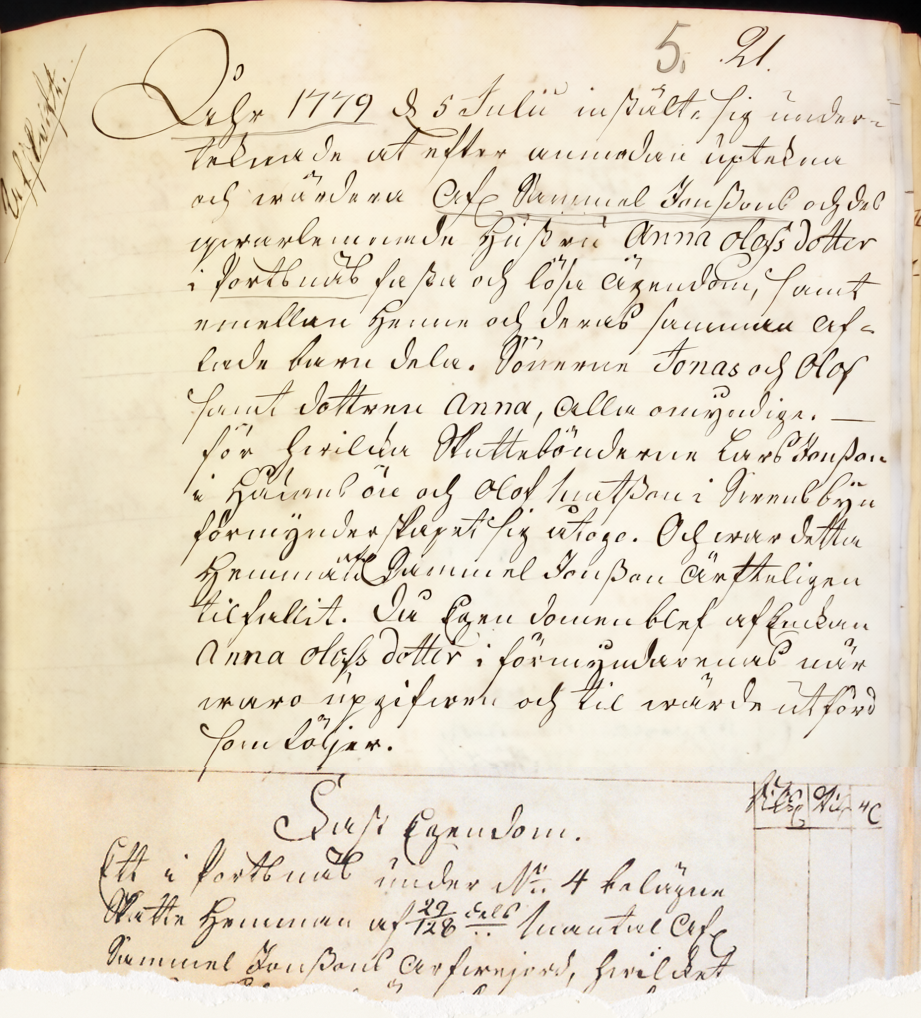 5. 21.
Åhr 1779 d 5 Julii instält sig under=
teknade at efter anmodan uptekna
och wärdera Afl. Sammel Jonßons och des
qwarlemnade Hustru Anna Olofs dotter
i Portsnäs fasta och lösa Ägendom, samt
emellan Henne och deras samman af=
lade barn dela. Sönerne Jonas och Olof
samt dottren Anna, alla omyndige. —
för hwilka Skattebönderne Lars Jonßon
i Hädansön och Olof Matßon i Sirensbyn
förmynderskapet sig åtogo. Och war detta
Hemman afl Sammel Jonßon Ärfteligen
tilfallit. Då Egendomen blef af Enckan
Anna Olofs dotter i förmyndarenas när
waro upgifwen och til wärde utförd
som följer.
Fast Egendom.
Ett i Portsnäs under No. 4 belägne
Skatte Hemman af 29/128 dels Mantal Afl
Sammel Jonßons Arfwejord, hwilcket